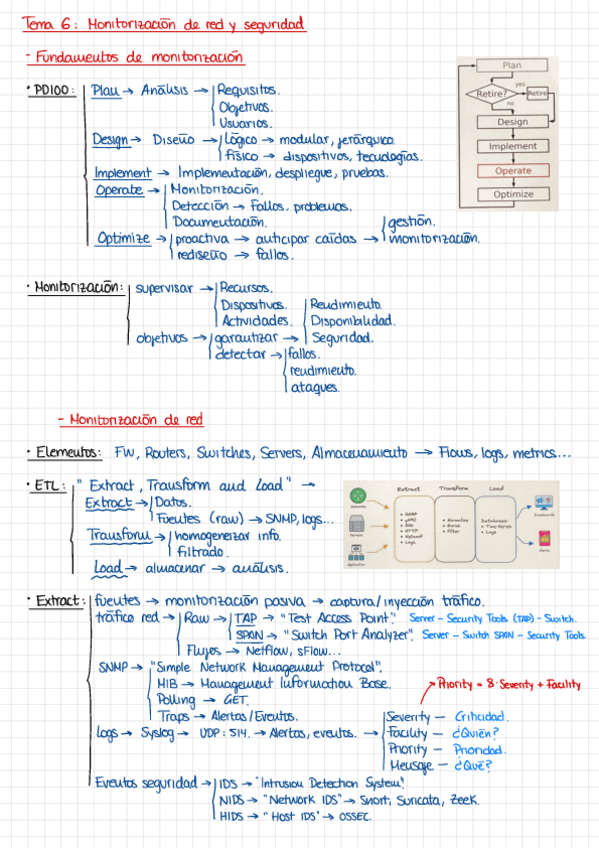 Tema 6: Monitorización de red y seguridad
- Fundamentos de monitorización
· PDIOO: Plan → Análisis → Requisitos.
Objetivos.
Usuarios.
Design → Diseño → Lógico → modular, jerárquico
físico → dispositivos, tecnologías.
Implement → Implementación, despliegue, pruebas.
Operate → Monitorización.
Detección → Fallos, problemas.
Documentación.
Optimize → proactiva → anticipar caídas → gestión.
monitorización.
rediseño → fallos.
Plan
Retire?
yes
Retire
no
Design
Implement
Operate
Optimize
· Monitorización: supervisar → Recursos.
Dispositivos.
Actividades.
objetivos → garantizar → Rendimiento
Disponibilidad.
Seguridad.
detectar → fallos.
rendimiento.
ataques.
- Monitorización de red
· Elementos: FW, Routers, Switches, Servers, Almacenamiento → Flows, logs, metrics...
· ETL: "Extract, Transform and Load" →
Extract → Datos.
Fuentes (raw) → SNMP, logs...
Transform → homogeneizar info.
filtrado.
Load → almacenar → análisis.
Extract Transform Load
· Extract: fuentes → monitorización pasiva → captura/inyección tráfico.
tráfico red → Raw → TAP → "Test Access Point". Server - Security Tools (TAP) - Switch.
SPAN → "Switch Port Analyzer". Server - Switch SPAN - Security Tools
Flujos → Netflow, sFlow...
SNMP → "Simple Network Management Protocol".
MIB → Management Information Base.
Polling → GET.
Traps → Alertas/Eventos.
Priority = 8·Severity + Facility
Logs → Syslog → UDP: 514. → Alertas, eventos. → Severity - Criticidad.
Facility - ¿Quién?
Priority - Prioridad.
Message - ¿Qué?
Eventos seguridad → IDS → "Intrusion Detection System".
NIDS → "Network IDS" → Snort, Suricata, Zeek.
HIDS → "Host IDS" → OSSEC.